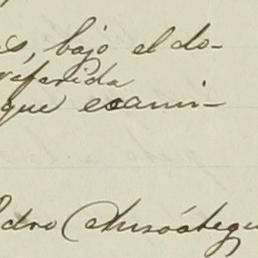 és, bajo el do-
referida
que exami-
edro Amsoátegu